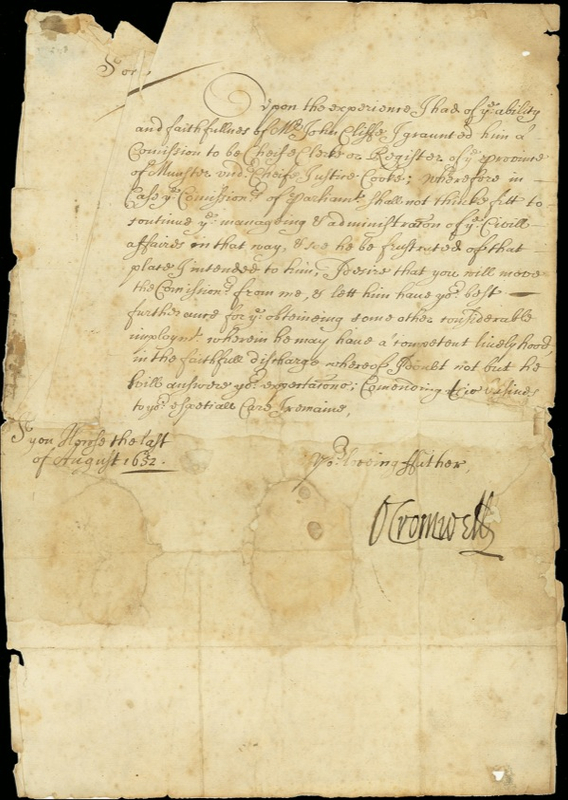 Sr
Vpon the experience I had of ye ability
and faithfullnes of Mr John Cliffe, I graunted him a
Comission to be Cheife Clerke or Register of ye province
of Munster undr Cheife Justice Cooke; wherefore in
Case ye Comissionrs of Parliamt shall not thinke fitt to
continue ye manageing & administracon of ye Civill
affaires in that way, & soe he be frustrated of that
place I intended to him, I desire that you will move
the Comissionrs from me, & lett him have yor best
furtherance for ye obteineing some other considerable
imploymt wherein he may have a competent livelyhood,
in the faithfull discharge whereof I doubt not but he
will answere yor expectacons; Comending this busines
to yor espetiall Care I remaine,
Syon House the last
of August 1652.
Yor loveing ffather,
OCromwell